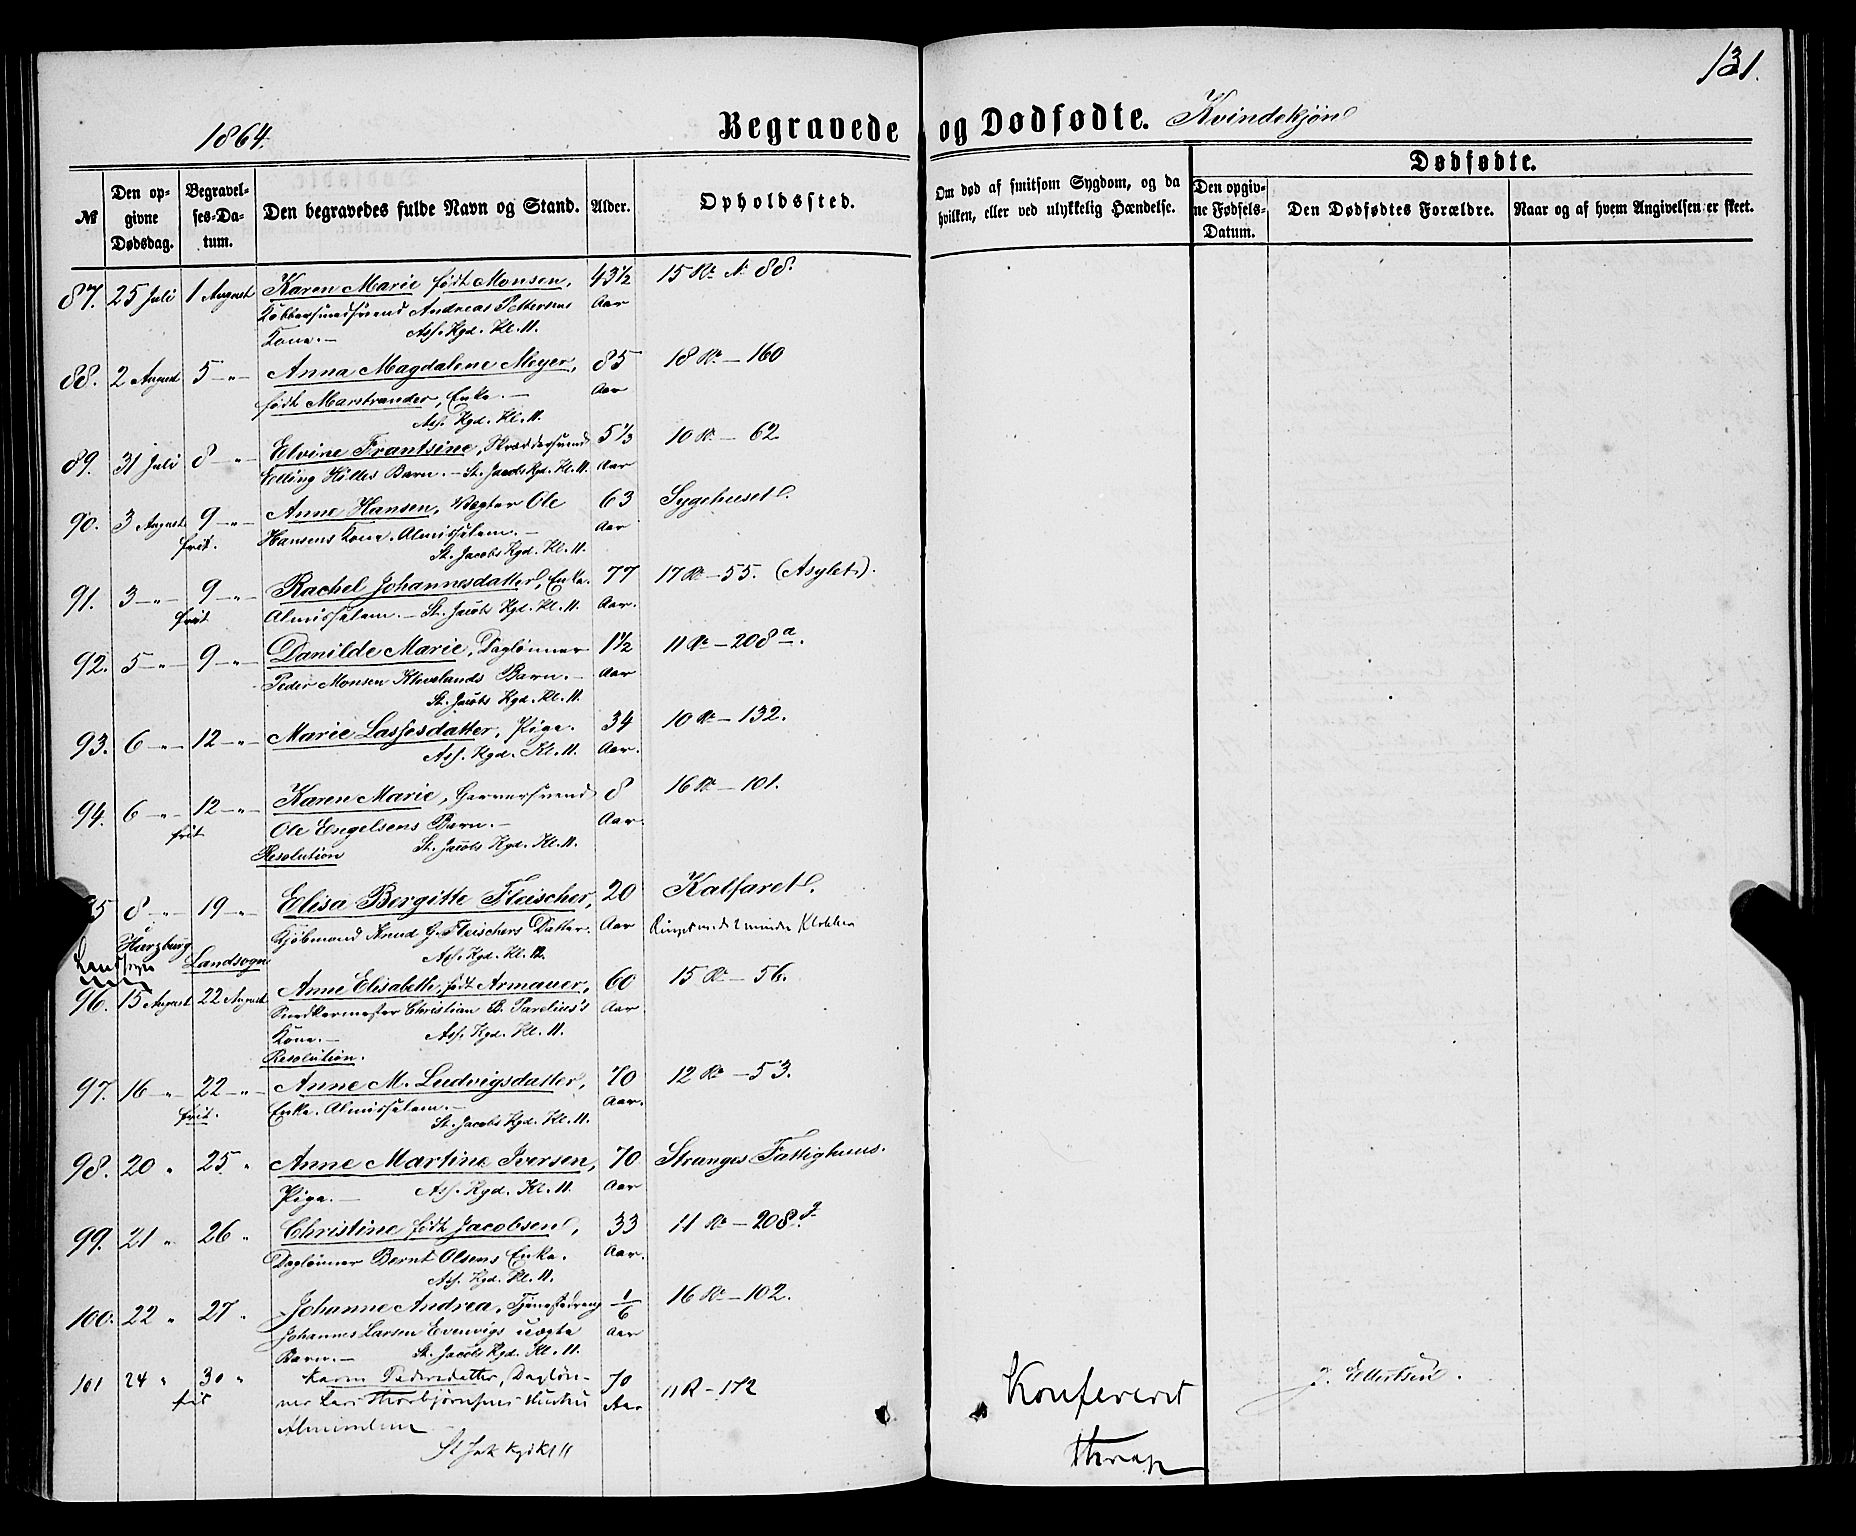 131.
1864.
Begravede og Dødfødte. Kvindekjøn
№
Den opgivne Dødsdag.
Begravelses-Datum.
Den begravedes fulde Navn og Stand.
Alder.
Opholdssted.
Om død af smitsom Sygdom, og da hvilken, eller ved ulykkelig Hændelse.
Dødfødte.
Den opgivne Fødsels-Datum.
Den Dødfødtes Forældre.
Naar og af hvem Angivelsen er skeet.
87. 25 Juli 1 August Karen Marie født Monsen, 43½ Aar 15 R. N. 88.
Kobbersmedsvend Andreas Pettersens
Kone. — Ass. Kgd. Kl. 11.
88. 2 August 5 —"— Anna Magdalene Meyer, 85 Aar 18 R. — 160
født Marstrander, Enke. —
Ass. Kgd. Kl. 11.
89. 31 Juli 8 —"— Elvine Frantsine, Skræddersvend 5⅓ Aar 10 R. — 62.
Elling Hilles Barn. — St. Jacobs Kgd. Kl. 11.
90. 3 August 9 —"— frit. Anne Hansen, Vægter Ole 63 Aar Sygehuset.
Hansens Kone. Almisselem. —
St. Jacobs Kgd. Kl. 11.
91. 3 —"— 9 —"— frit Rachel Johannesdatter, Enke. 77 Aar. 17 R. — 55. (Asylet).
Almisselem. — St. Jacobs Kgd. Kl. 11.
92. 5 —"— 9 —"— Danilde Marie, Daglønner 1½ Aar 11 R. — 208 a.
Peder Monsen Barn. —
St. Jacobs Kgd. Kl. 11.
93. 6 —"— 12 —"— Marie Lassesdatter, Pige. 34 Aar. 10 R. — 132.
Ass. Kgd. Kl. 11.
94. 6 —"— 12 —"— frit Karen Marie, Garversvend 8 Aar. 16 R. — 101.
Ole Engelsens Barn. —
Resolution St. Jacobs Kgd. Kl. 11.
95 8 —"— 19 —"— Elisa Bergitte Fleischer, 20 Aar Kalfaret.
Kjøbmand Knud G. Fleischers Datter. Ringet med 2 mindre Klokker
Ass. Kgd. Kl. 12.
Harzburg
Landsogn
96. 15 August 22 August Anne Elisabeth, født Armauer, 60 Aar. 15 R. — 56.
Snedkermester Christian B. Parelius's
Kone. — Ass. Kgd. Kl. 11.
Resolution.
97. 16 " 22 —"— frit. Anne M. Ludvigsdatter, 70 Aar. 12 R. — 53.
Enke. Almisselem. —
St. Jacobs Kgd. Kl. 11.
98. 20 " 25 " Anne Martine Iversen, 70 Aar Stranges Fattighuus.
Pige. — Ass. Kgd. Kl. 11.
99. 21 " 26 " Christine født Jacobsen, 33 Aar. 11 R. — 208.
Daglønner Bernt Olsens Enke.
Ass. Kgd. Kl. 11.
100. 22 " 27 " Johanne Andrea, Tjenestedreng 1/6 Aar 16 R. — 102.
Johannes Larsen Evenvigs uægte
Barn. — St. Jacobs Kgd. Kl. 11.
101 24 " 30 " frit Karen Pedersdatter, Dagløn- 70 Aar 11 R — 172
ner Lars Thorbjørnsens Hustru
Almisselem
St Jak Kgd Kl 11
Konfereret
J. Ellertsen.